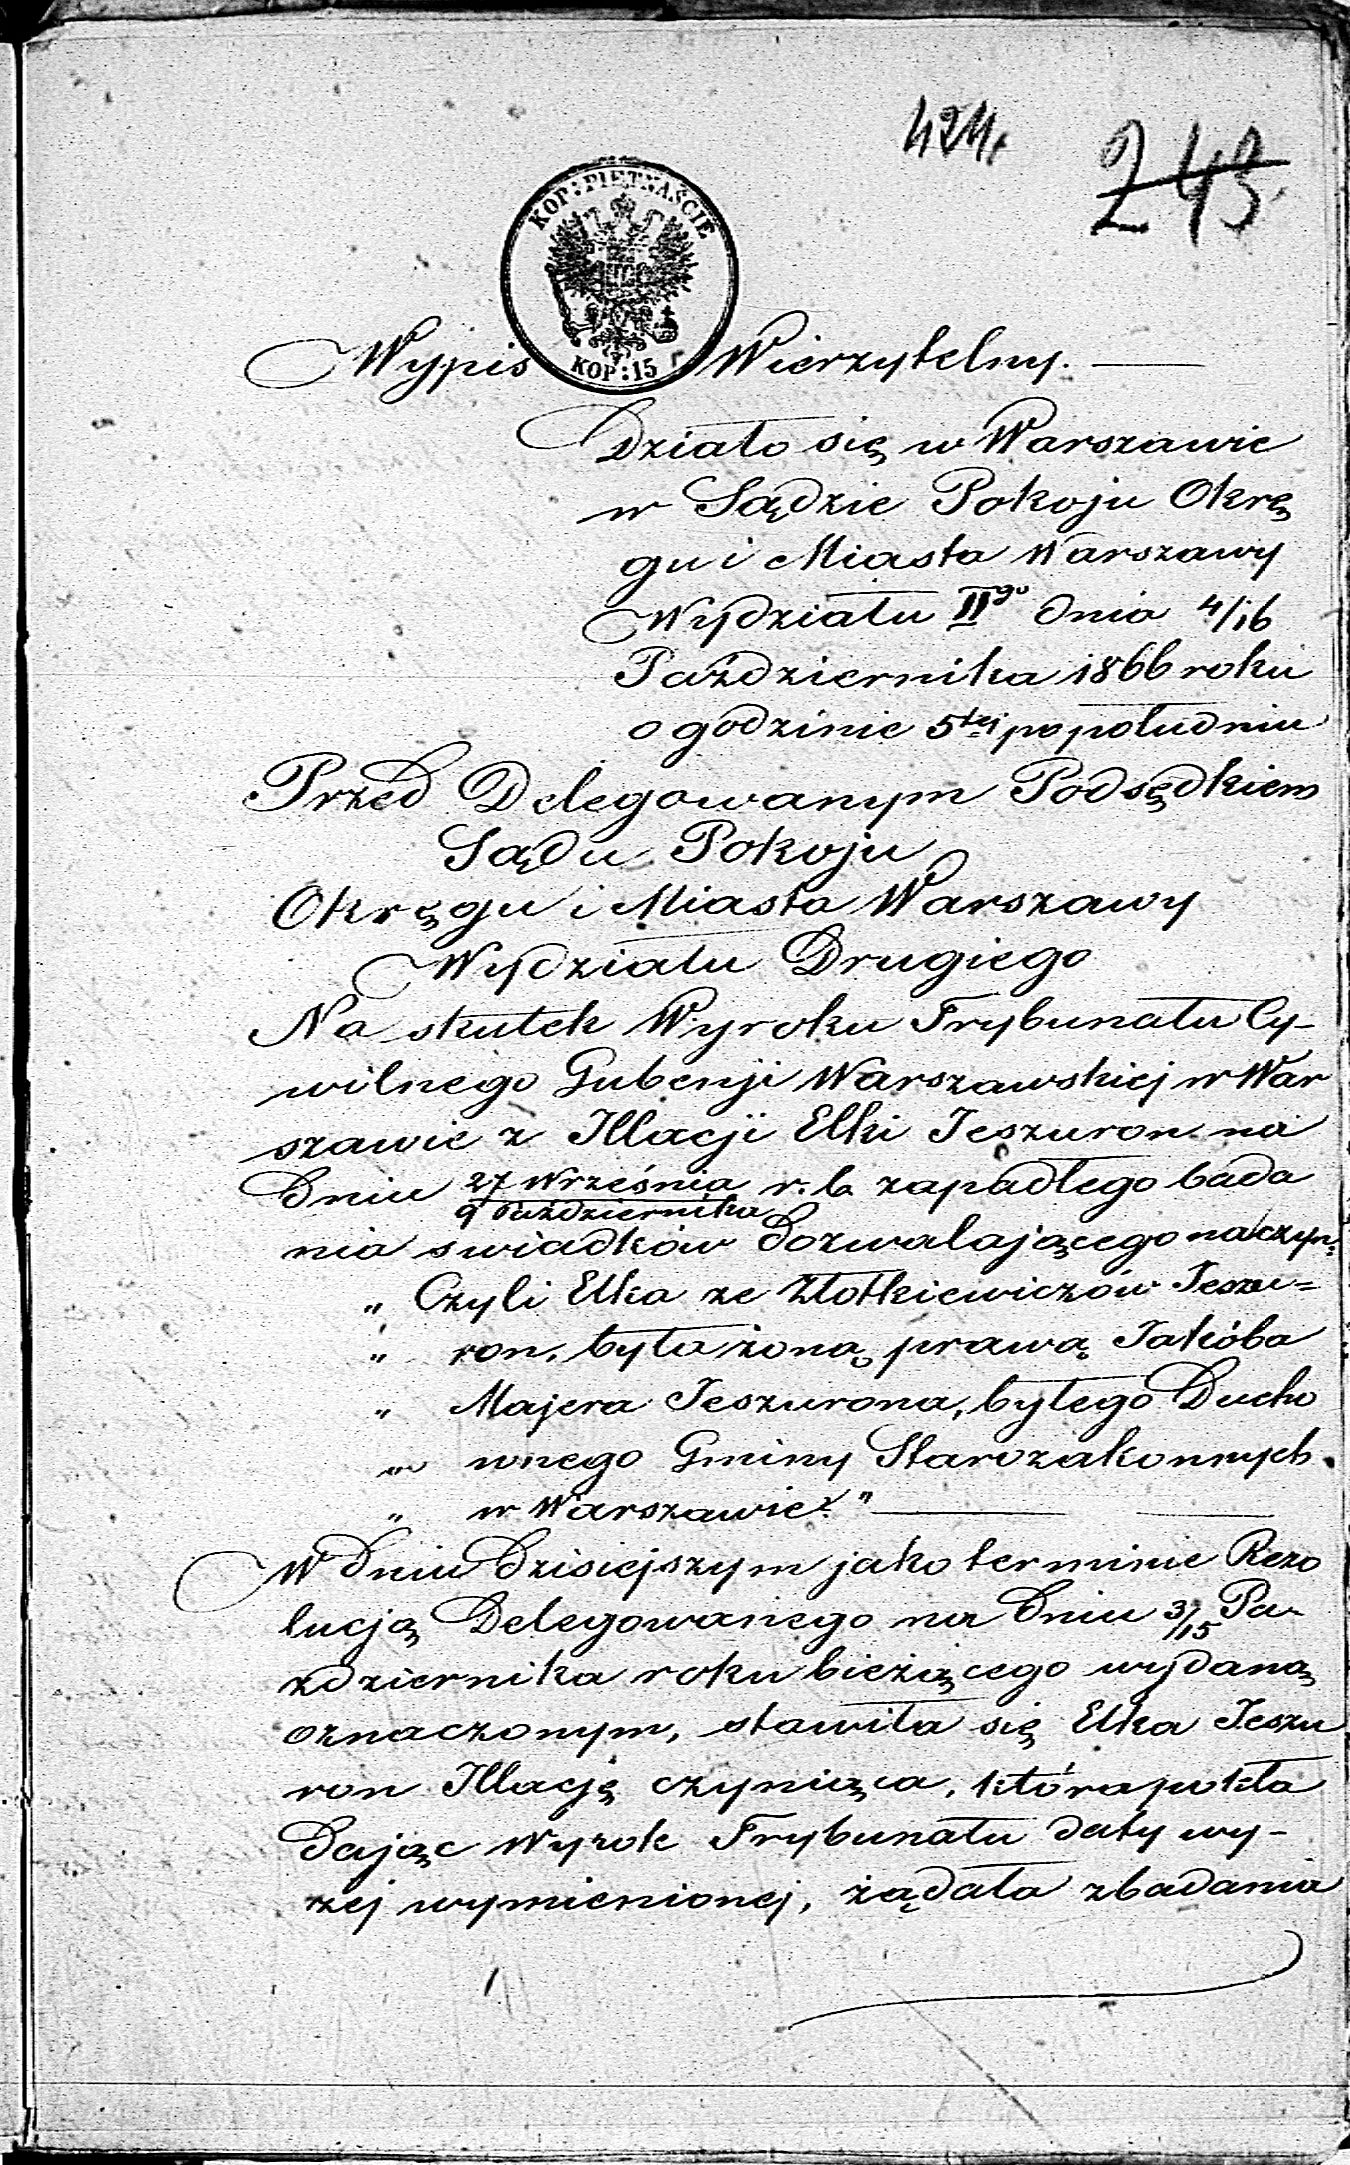 424.
243.
KOP: PIĘTNAŚCIE
KOP: 15
Wypis Wierzytelny.
Działo się w Warszawie
w Sądzie Pokoju Okrę
gu i Miasta Warszawy
Wydziału IIgo dnia 4/16
Października 1866 roku
o godzinie 5tej popołudniu
Przed Delegowanym Podsędkiem
Sądu Pokoju
Okręgu i Miasta Warszawy
Wydziału Drugiego
Na skutek Wyroku Trybunału Cy-
wilnego Gubenji Warszawskiej w War
szawie z Illacji Elki Jeszuron na
dniu 27 Września / 9 Października r. b. zapadłego bada
nia swiadków dozwalającego
„ Czyli Elka ze Złotkiewiczów Jeszu=
„ ron, była żoną prawą Jakóba
„ Majera Jeszurona, byłego Ducho
„ wnego Gminy Starozakonnych
„ w Warszawie?"
W dniu dzisiejszym jako terminie Rezo
lucją Delegowanego na dniu 3/15 Pa-
zdziernika roku bieżącego wydaną
oznaczonym, stawiła się Elka Jeszu
ron Illację czyniąca, która pokła
dając Wyrok Trybunału daty wy-
zej wymienionej, żądała zbadania